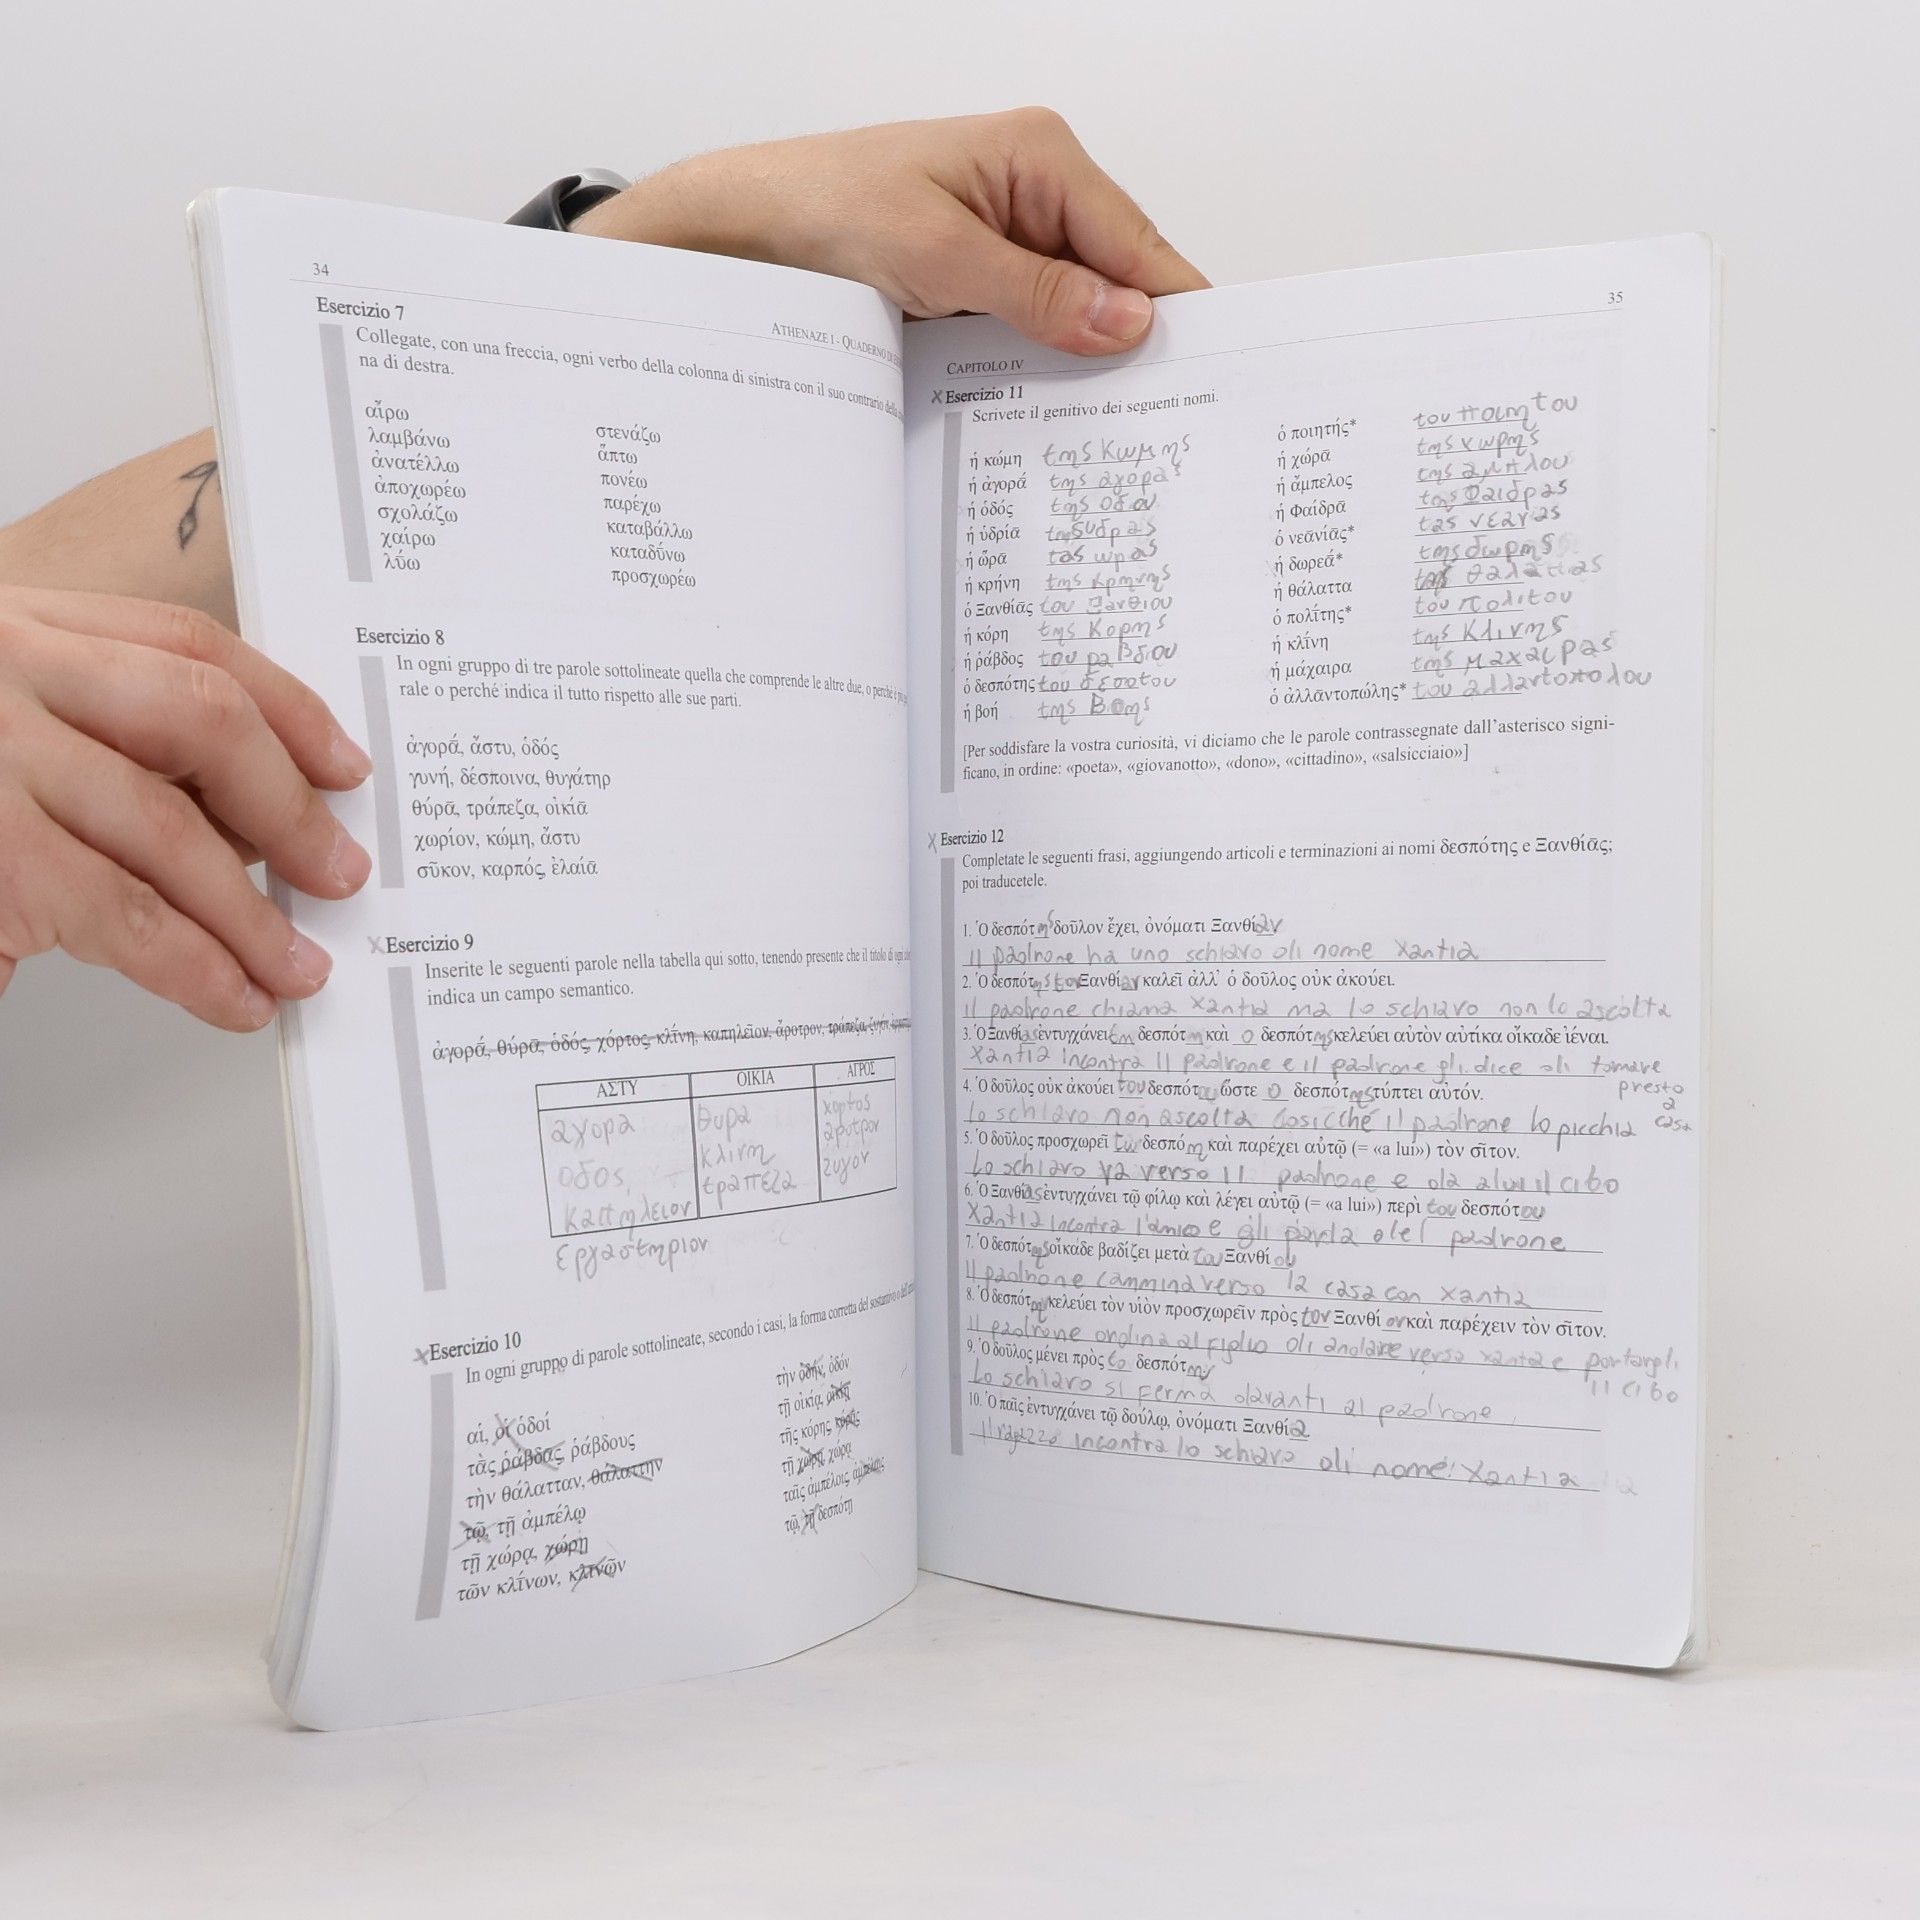 34
ATHENAZE I - QUADERNO DI
Esercizio 7
Collegate, con una freccia, ogni verbo della colonna di sinistra con il suo contrario
na di destra.
αἴρω
λαμβάνω στενάζω
ἀνατέλλω ἅπτω
ἀποχωρέω πονέω
σχολάζω παρέχω
χαίρω καταβάλλω
λύω καταδύνω
προσχωρέω
Esercizio 8
In ogni gruppo di tre parole sottolineate quella che comprende le altre due, o perché è
rale o perché indica il tutto rispetto alle sue parti.
ἀγορά, ἄστυ, ὁδός
γυνή, δέσποινα, θυγάτηρ
θύρᾱ, τράπεζα, οἰκίᾱ
χωρίον, κώμη, ἄστυ
σῦκον, καρπός, ἐλαίᾱ
X Esercizio 9
Inserite le seguenti parole nella tabella qui sotto, tenendo presente che il titolo di ogni
indica un campo semantico.
ἀγορᾱ́, θύρᾱ, ὁδός, χόρτος, κλῑ́νη, καπηλεῖον, ἄροτρον, τράπεζα,
ΑΣΤΥ ΟΙΚΙΑ ΑΓΡΟΣ
αγορα θυρα χορτος
οδος κλινη αροτρον
καπηλειον τραπεζα ζυγον
εργαστηριον
X Esercizio 10
In ogni gruppo di parole sottolineate, secondo i casi, la forma corretta del sostantivo o
αἱ, οἱ ὁδοί
τᾱ̀ς ῥάβδας, ῥάβδους
τὴν θάλατταν, θάλαττην
τῷ, τῇ ἀμπέλῳ
τῇ χώρᾳ, χώρῃ
τῶν κλῑ́νων, κλινῶν
τὴν ὁδήν, ὁδόν
τῇ οἰκίᾳ, οἰκίῃ
τῆς κόρης, κόρᾱς
τῇ χώρῃ, χώρᾳ
ταῖς ἀμπέλοις, ἀμπέλαις
τῷ, τῇ δεσπότῃ
35
CAPITOLO IV
X Esercizio 11
Scrivete il genitivo dei seguenti nomi.
ἡ κώμη της κωμης ὁ ποιητής* του ποιητου
ἡ ἀγορᾱ́ της αγορας ἡ χώρᾱ της χωρης
ἡ ὁδός της οδου ἡ ἄμπελος της αμπλου
ἡ ὑδρίᾱ της υδρας ἡ Φαίδρᾱ της Φαιδρας
ἡ ὥρᾱ τας ωρας ὁ νεᾱνίᾱς* τας νεανας
ἡ κρήνη της κρηνης ἡ δωρεᾱ́* της δωρης
ὁ Ξανθίᾱς του Ξανθιου ἡ θάλαττα της θαλαττας
ἡ κόρη της Κορης ὁ πολῑ́της* του πολιτου
ἡ ῥάβδος του ραβδιου ἡ κλῑ́νη της κλινης
ὁ δεσπότης του δεσποτου ἡ μάχαιρα της μαχαιρας
ἡ βοή της βοης ὁ ἀλλᾱντοπώλης* του αλλαντοπολου
[Per soddisfare la vostra curiosità, vi diciamo che le parole contrassegnate dall'asterisco signi-
ficano, in ordine: «poeta», «giovanotto», «dono», «cittadino», «salsicciaio»]
X Esercizio 12
Completate le seguenti frasi, aggiungendo articoli e terminazioni ai nomi δεσπότης e Ξανθίᾱς;
poi traducetele.
1. Ὁ δεσπότης δοῦλον ἔχει, ὀνόματι Ξανθίαν
Il padrone ha uno schiavo di nome Xantia
2. Ὁ δεσπότης τον Ξανθίαν καλεῖ ἀλλ' ὁ δοῦλος οὐκ ἀκούει.
Il padrone chiama Xantia ma lo schiavo non lo ascolta
3. Ὁ Ξανθίας ἐντυγχάνει τη δεσπότη καὶ ο δεσπότης κελεύει αὐτὸν αὐτίκα οἴκαδε ἰέναι.
Xantia incontra il padrone e il padrone gli dice di tornare presto a casa
4. Ὁ δοῦλος οὐκ ἀκούει του δεσπότου ὥστε ο δεσπότης τύπτει αὐτόν.
Lo schiavo non ascolta cosicché il padrone lo picchia
5. Ὁ δοῦλος προσχωρεῖ τω δεσπότη καὶ παρέχει αὐτῷ (= «a lui») τὸν σῖτον.
Lo schiavo va verso il padrone e da a lui il cibo
6. Ὁ Ξανθίας ἐντυγχάνει τῷ φίλῳ καὶ λέγει αὐτῷ (= «a lui») περὶ του δεσπότου
Xantia incontra l'amico e gli parla del padrone
7. Ὁ δεσπότης οἴκαδε βαδίζει μετὰ του Ξανθίου
Il padrone cammina verso la casa con Xantia
8. Ὁ δεσπότης κελεύει τὸν υἱὸν προσχωρεῖν πρὸς τον Ξανθίον καὶ παρέχειν τὸν σῖτον.
Il padrone ordina al figlio di andare verso Xantia e portargli il cibo
9. Ὁ δοῦλος μένει πρὸς το δεσπότην
Lo schiavo si ferma davanti al padrone
10. Ὁ παῖς ἐντυγχάνει τῷ δούλῳ, ὀνόματι Ξανθία.
Il ragazzo incontra lo schiavo di nome Xantia